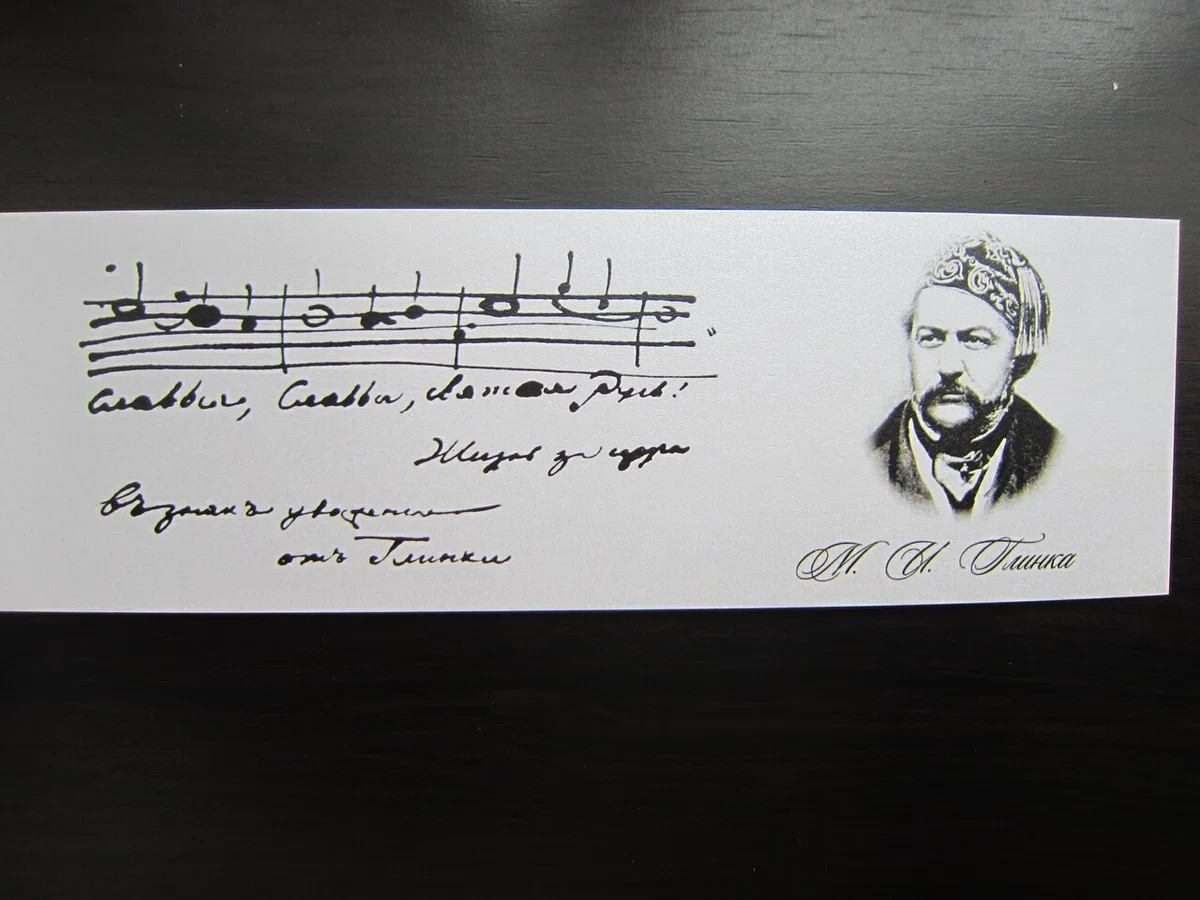 Славься, Славься, святая Русь!
Жизнь за царя
въ знакъ уваженія
отъ Глинки
М. И. Глинка